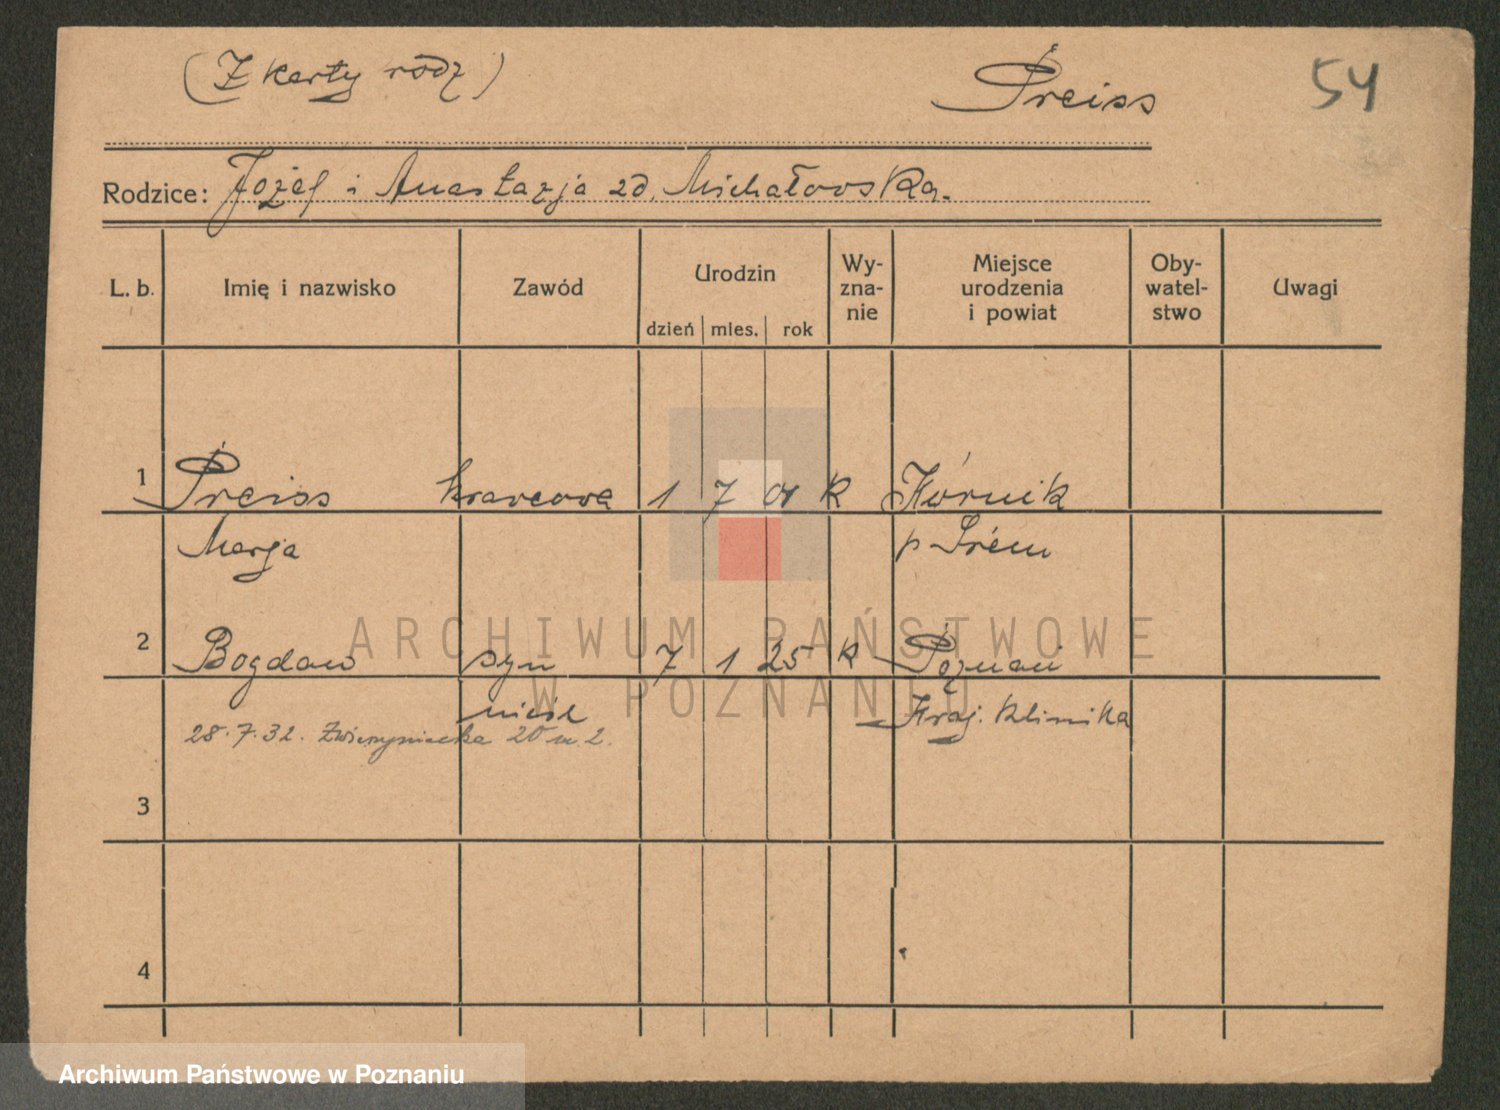 (Z karty rodz)
Preiss
54
Rodzice: Józef i Anastazja zd. Michałowska.
L. b. Imię i nazwisko Zawód Urodzin dzień mies. rok Wy-zna-nie Miejsce urodzenia i powiat Oby-watel-stwo Uwagi
1 Preiss krawcowa 1 7 01 k Kórnik
Marja p Śrem
ARCHIWUM PAŃSTWOWE
2 Bogdan syn 7 1 25 k Poznań
W POZNANIU
nieśl Kraj. Klinika
28.7.32. Zwierzyniecka 20 m 2.
3
4
Archiwum Państwowe w Poznaniu